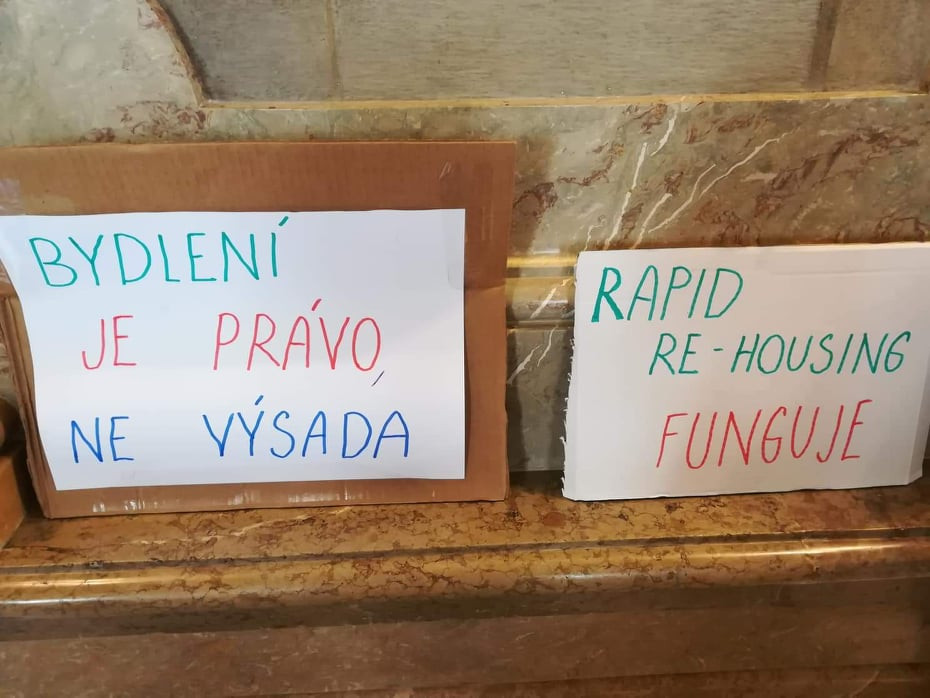 BYDLENÍ
JE PRÁVO,
NE VÝSADA
RAPID
RE-HOUSING
FUNGUJE